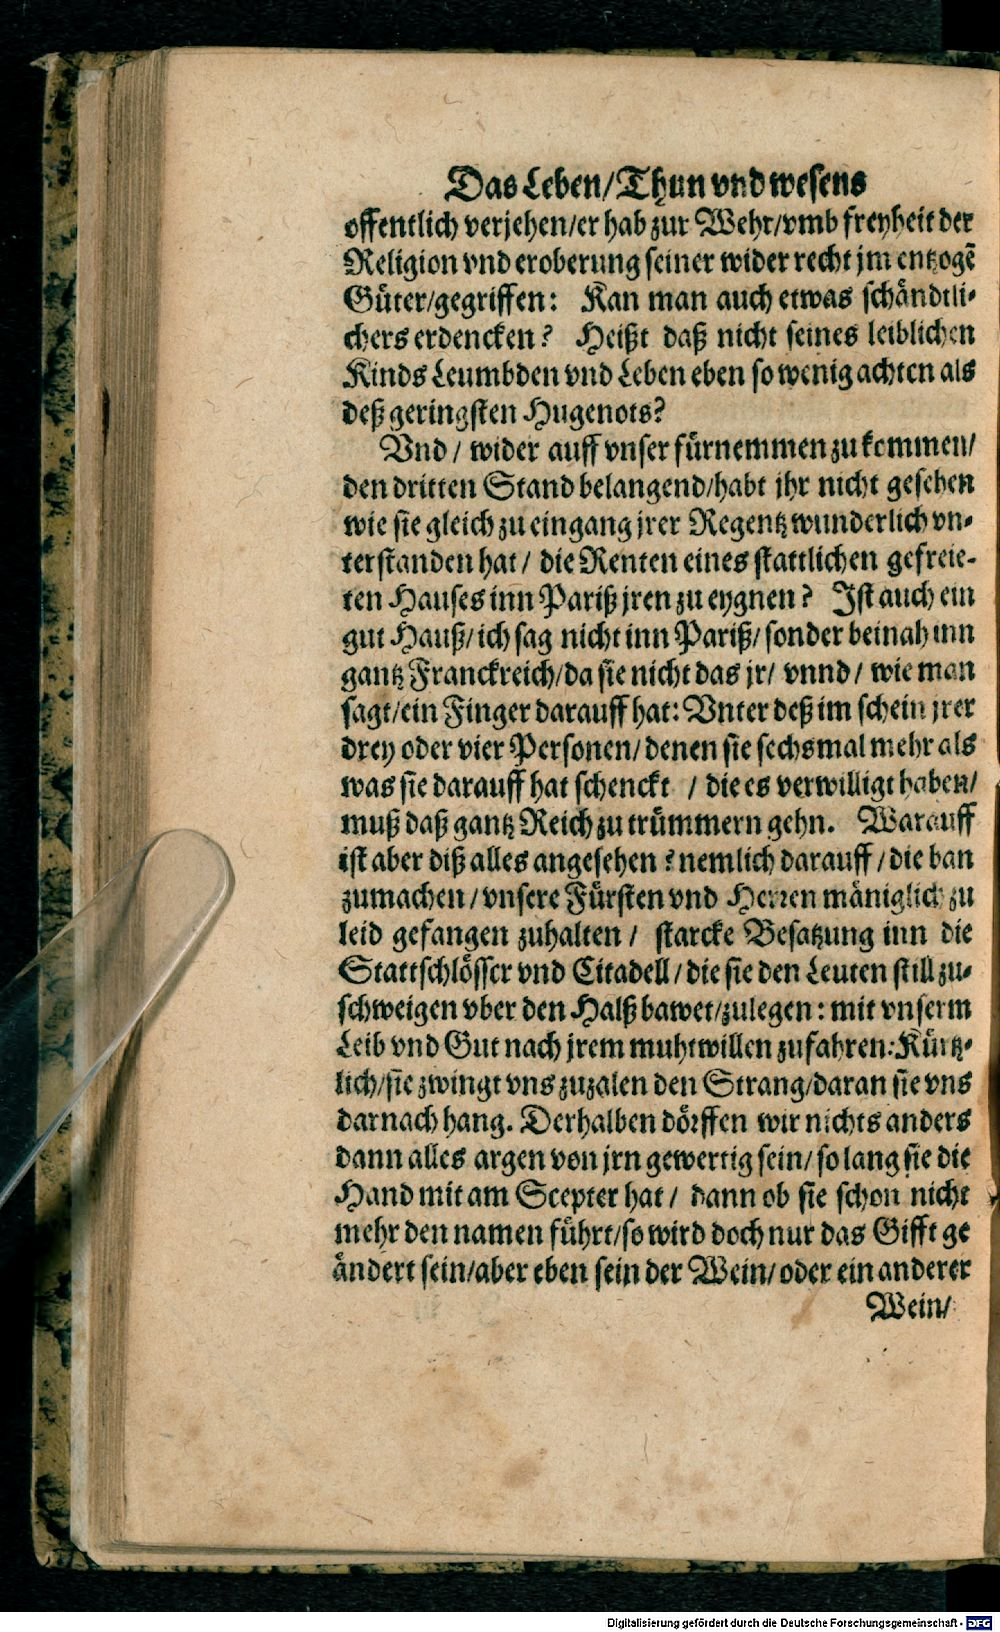 Das Leben/Thun vnd wesens
offentlich verjehen/er hab zur Wehr/vmb freyheit der
Religion vnd eroberung seiner wider recht jm entzogẽ
Güter/gegriffen: Kan man auch etwas schändtli-
chers erdencken? Heißt daß nicht seines leiblichen
Kinds Leumbden vnd Leben eben so wenig achten als
deß geringsten Hugenots?
Vnd/ wider auff vnser fürnemmen zu kommen/
den dritten Stand belangend/habt jhr nicht gesehen
wie sie gleich zu eingang jrer Regentz wunderlich vn-
terstanden hat/ die Renten eines stattlichen gefreie-
ten Hauses inn Pariß jren zu eygnen? Ist auch ein
gut Hauß/ich sag nicht inn Pariß/sonder beinah inn
gantz Franckreich/da sie nicht das jr/ vnnd/ wie man
sagt/ein Finger darauff hat: Vnter deß im schein jrer
drey oder vier Personen/denen sie sechsmal mehr als
was sie darauff hat schenckt / die es verwilligt haben/
muß daß gantz Reich zu trümmern gehn. Warauff
ist aber diß alles angesehen? nemlich darauff/die ban
zumachen/vnsere Fürsten vnd Herren mäniglich zu
leid gefangen zuhalten/ starcke Besatzung inn die
Stattschlösser vnd Citadell/die sie den Leuten still zu-
schweigen vber den Halß bawet/zulegen: mit vnserm
Leib vnd Gut nach jrem muhtwillen zufahren: Kürtz-
lich/sie zwingt vns zuzalen den Strang/daran sie vns
darnach hang. Derhalben dörffen wir nichts anders
dann alles argen von jrn gewertig sein/so lang sie die
Hand mit am Scepter hat/ dann ob sie schon nicht
mehr den namen führt/so wird doch nur das Gifft ge
ändert sein/aber eben sein der Wein/oder ein anderer
Wein/
Digitalisierung gefördert durch die Deutsche Forschungsgemeinschaft - DFG